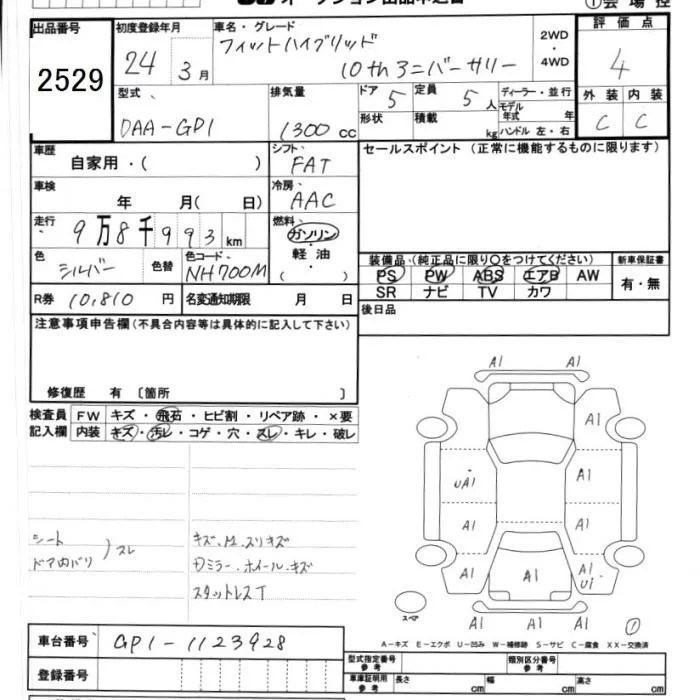 オークション出品申込書
①会場控
出品番号 初度登録年月 車名・グレード 評価点
2529 24 3月 フィットハイブリッド 10th アニバーサリー 2WD・4WD 4
型式 排気量 ドア 定員 ディーラー・並行 外装 内装
DAA-GP1 1300 cc 5 5人 モデル年式 年 C C
形状 積載 kg ハンドル 左・右
車歴 自家用・( ) シフト FAT セールスポイント (正常に機能するものに限ります)
車検 年 月( 日) 冷房 AAC
走行 9万8千993km 燃料 ガソリン・軽油・( )
色 シルバー 色替 色コード NH700M
装備品 (純正品に限り○をつけてください) 新車保証書
PS PW ABS エアB AW 有・無
SR ナビ TV カワ
R券 10,810円 名変通知期限 月 日 後日品
注意事項申告欄(不具合内容等は具体的に記入して下さい)
修復歴 有 〔箇所 〕
検査員記入欄 FW キズ・飛石・ヒビ割・リペア跡・×要
内装 キズ・汚レ・コゲ・穴・スレ・キレ・破レ
シート
ドア内バリ )スレ
キズ、M、スリキズ
ミラー、ホイール、キズ
スタットレスT
A1 A1
A1
UA1 A1
A1 A1
A1 A1 A1
U1
A1 A1 A1
スペア ①
A-キズ E-エクボ U-凹み W-補修跡 S-サビ C-腐食 XX-交換済
車台番号 GP1-1123928
登録番号
型式指定番号 参考 類別区分番号 参考
車庫証明用 参考 長さ cm 幅 cm 高さ cm